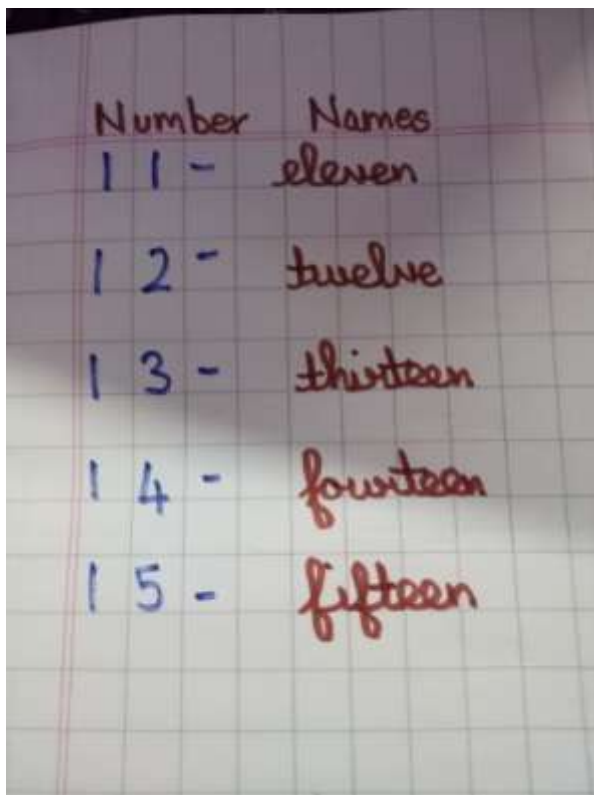 Number Names
11 - eleven
12 - twelve
13 - thirteen
14 - fourteen
15 - fifteen